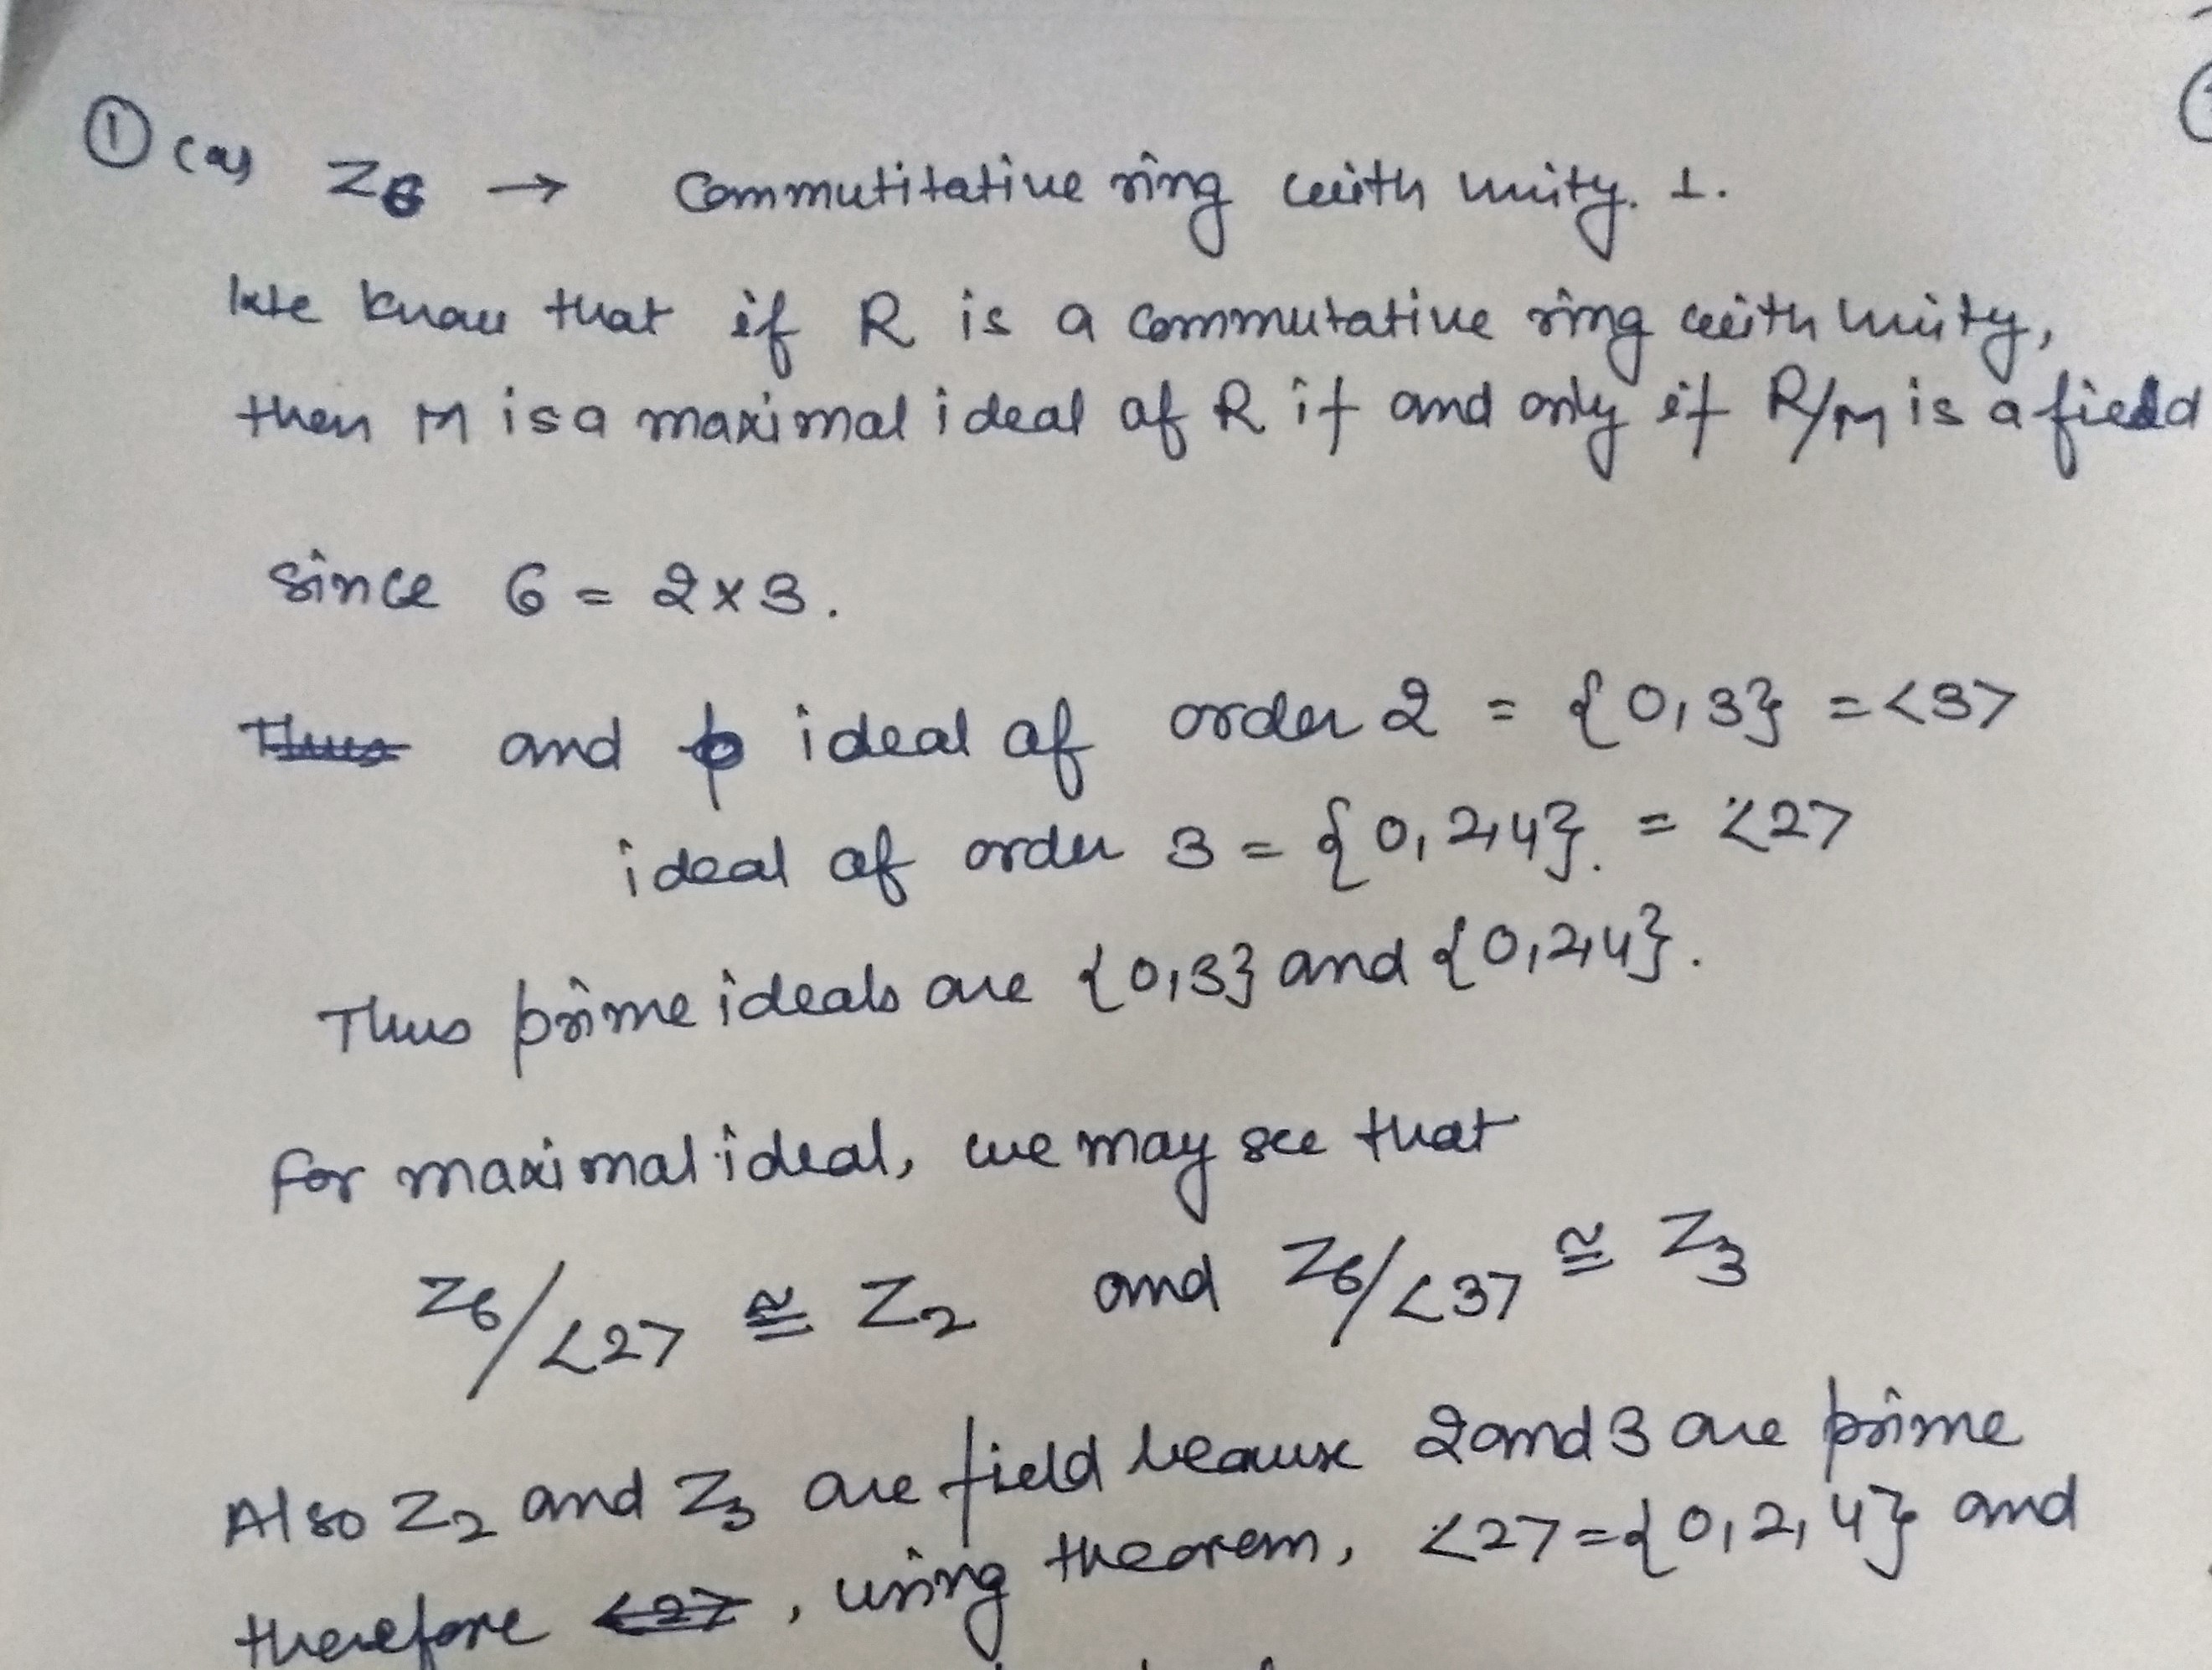 ① (a) Z6 → Commutitative ring with unity. 1.
We know that if R is a commutative ring with unity,
then M is a maximal ideal of R if and only if R/M is a field
since 6 = 2×3.
Thus and ideal of order 2 = {0,3} = <3>
ideal of order 3 = {0,2,4}. = <2>
Thus prime ideals are {0,3} and {0,2,4}.
for maximal ideal, we may see that
Z6/<2> ≅ Z2 and Z6/<3> ≅ Z3
Also Z2 and Z3 are field because 2 and 3 are prime
therefore <2>, using theorem, <2> = {0,2,4} and